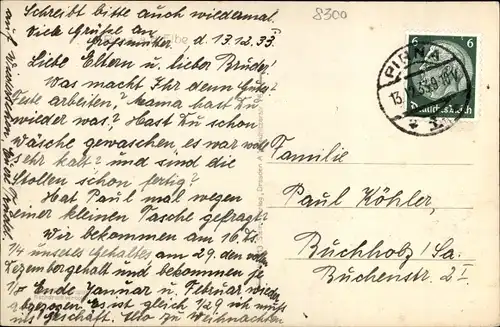 Schreibt bitte auch wiedermal.
Viele Grüße an
Großmutter, d. 13.12.33.
Liebe Eltern u. lieber Bruder!
Was macht Ihr denn Gutes?
Feste arbeiten? Mama hast Du
wieder was? Hast Du schon
Wäsche gewaschen, es war wohl
sehr kalt? und sind die
Stollen schon fertig?
Hat Paul mal wegen
einer kleinen Tasche gefragt?
Wir bekommen am 16.
14 unseres Gehaltes am 29. den vollen
Dezembergehalt und bekommen je
Ende Januar u. Februar wieder
abgezogen. Es ist gleich 1/2 9 ich muß
ins Geschäft. Also zu Weihnachten
auf Wiedersehen
8300
PIRNA
13.12.33
6 6
Deutsches Reich
Familie
Paul Köhler,
Buchholz/Sa.
Buchenstr. 2 I